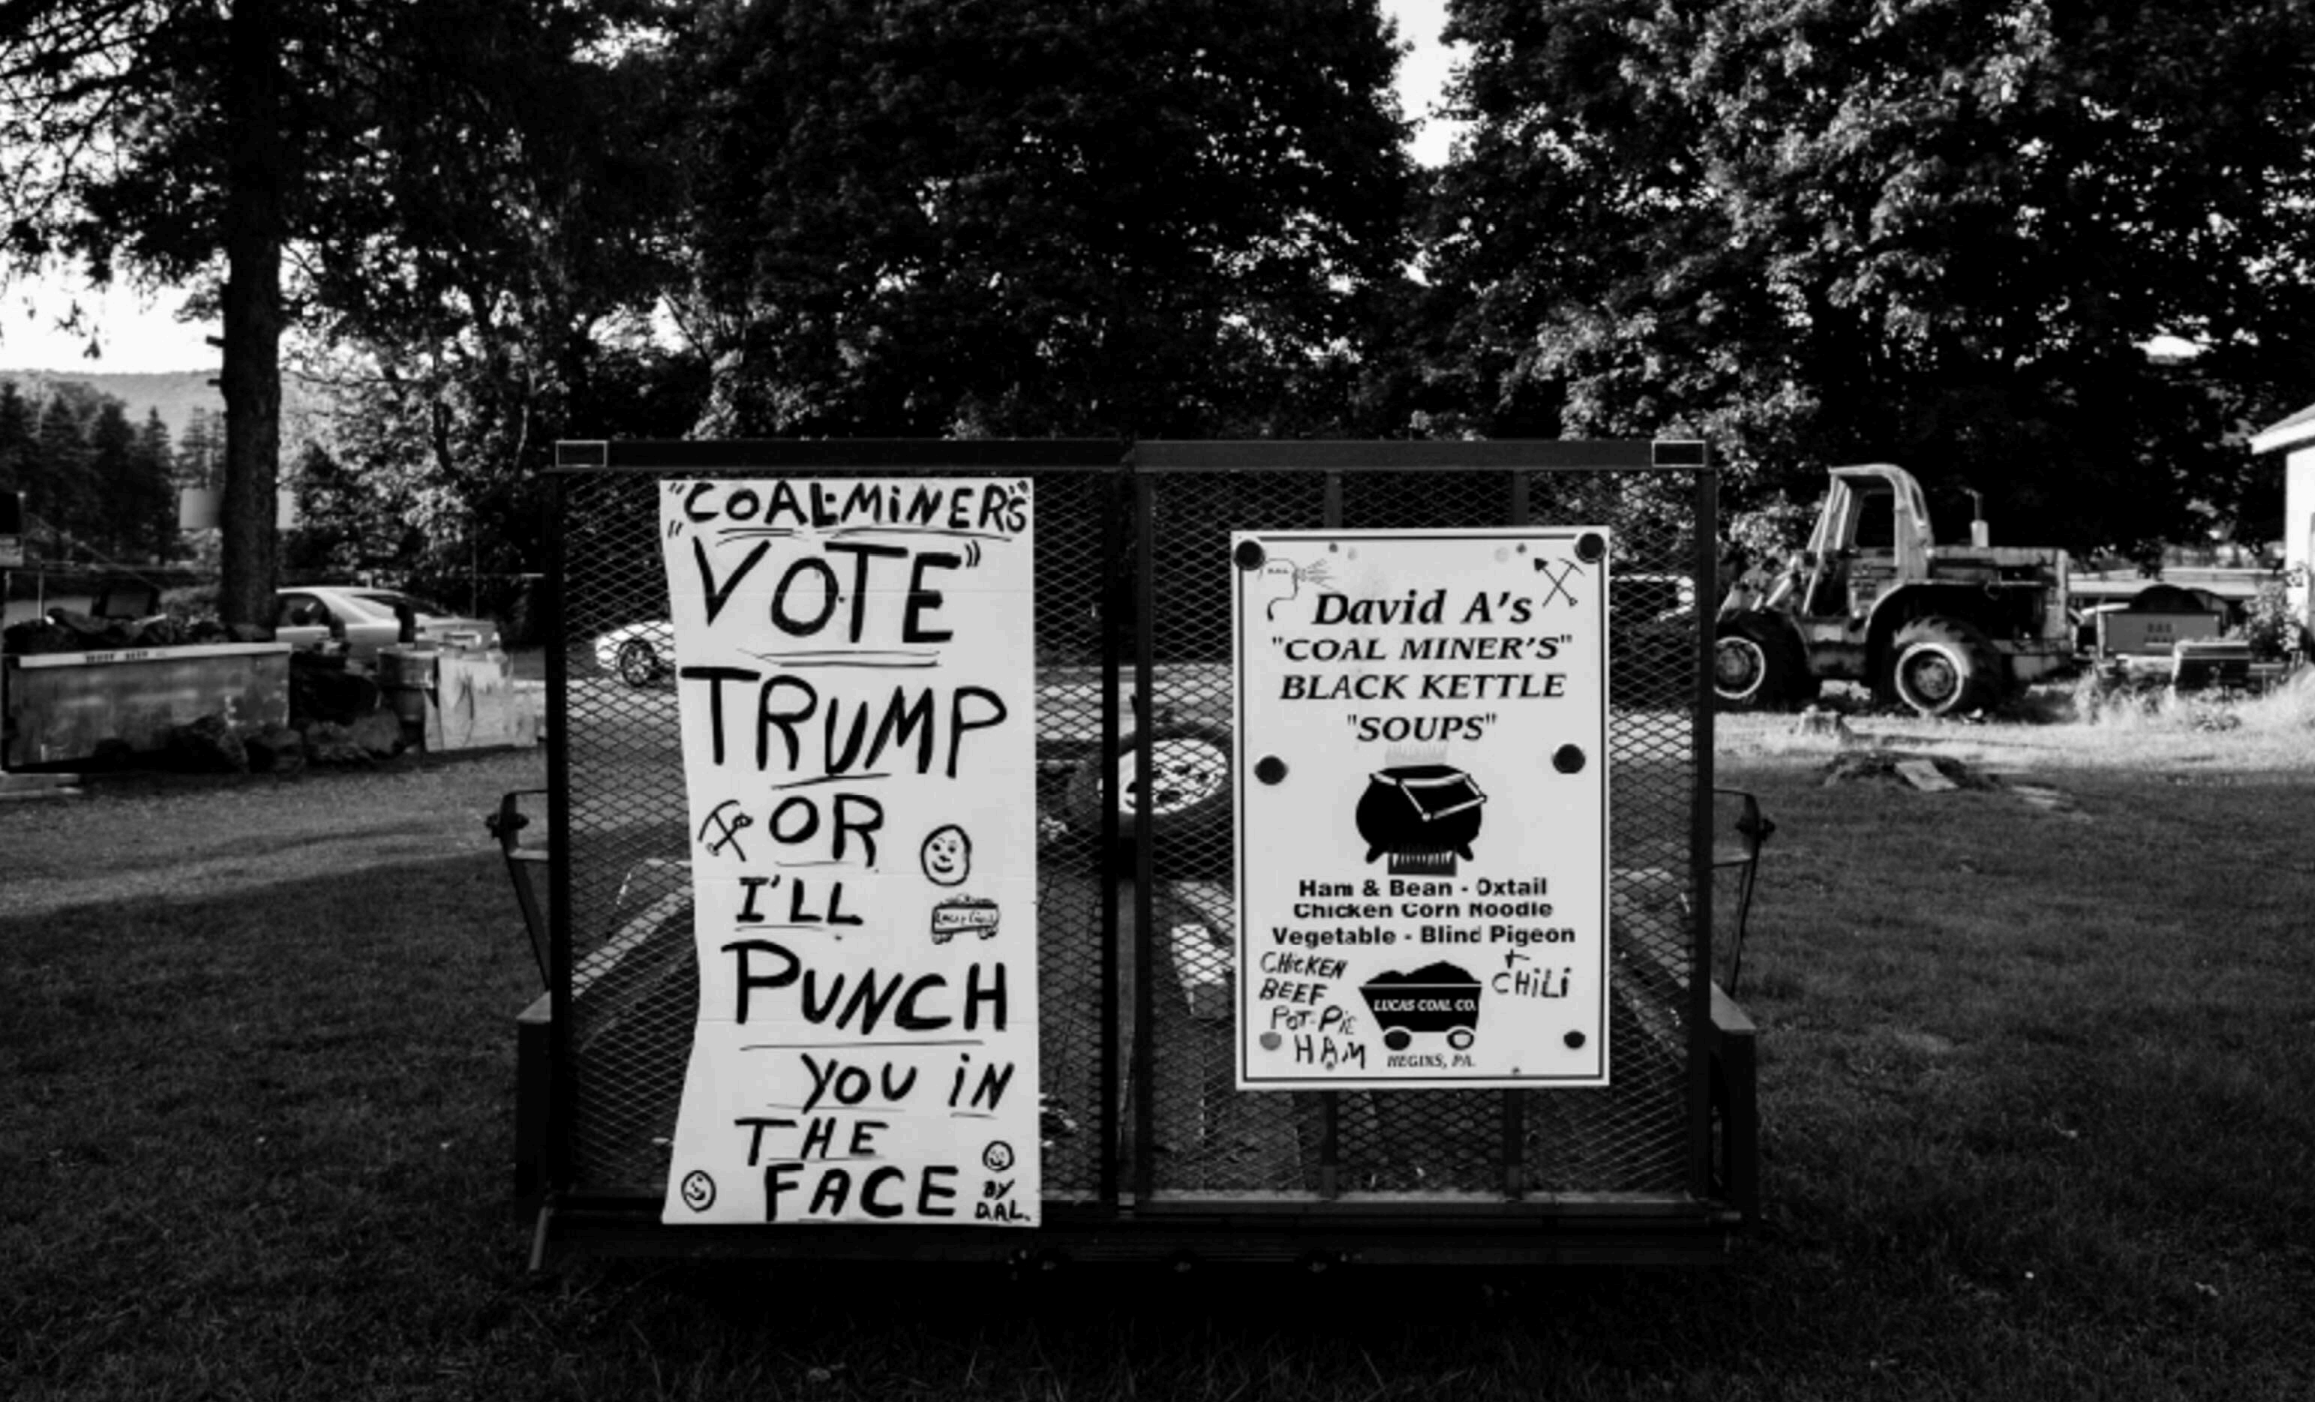 "COAL-MINER'S"
"VOTE"
TRUMP
OR
I'LL
PUNCH
YOU iN
THE
FACE
BY
D.A.L.
David A's
"COAL MINER'S"
BLACK KETTLE
"SOUPS"
Ham & Bean - Oxtail
Chicken Corn Noodle
Vegetable - Blind Pigeon
+
CHiLi
CHICKEN
BEEF
POT-PiE
HAM
LUCAS COAL CO.
HEGINS, PA.